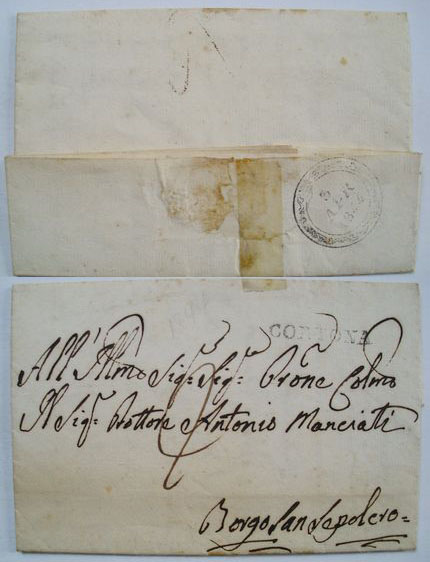 3
APR
CORTONA
All' Illmo Sigr: Sigr: Prone Colmo
Il Sigr: Dottore Antonio Manciati
Borgo San Sepolcro=